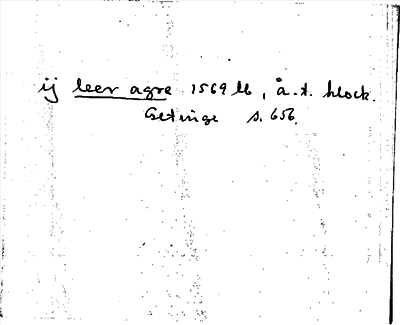 ij leer agre 1569 lb, å.t. block.
Getinge s. 656.